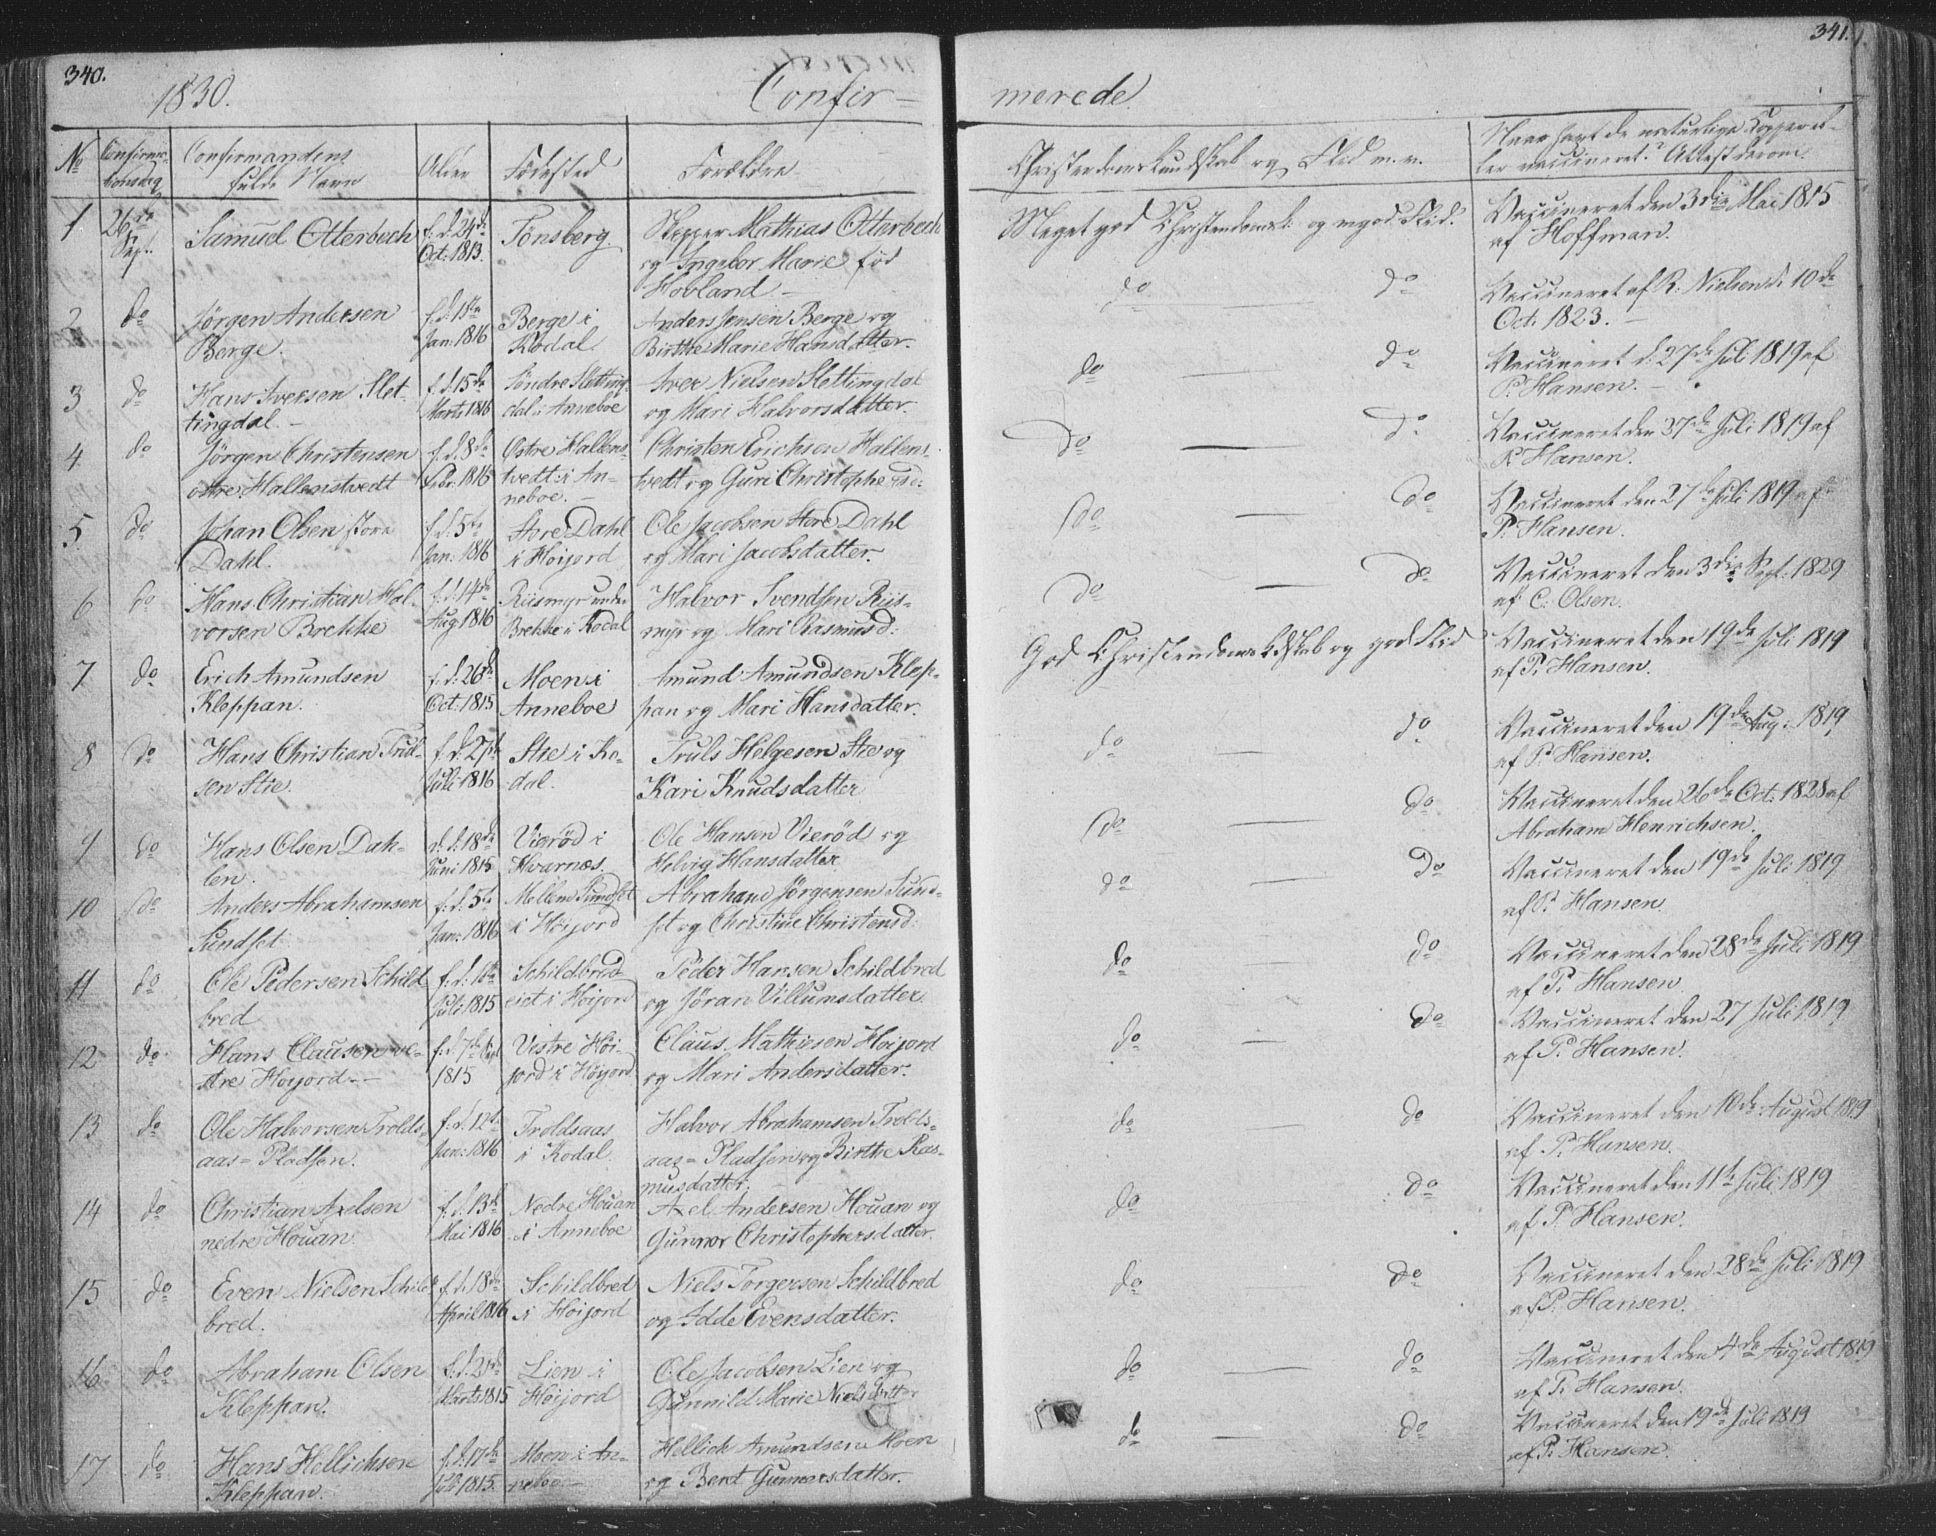 340.
1830.
Confir-
No
Confirma-
tionsdag
Confirmandens
fulde Navn
Alder
Födested
Forældre
1
26de
Sept.
Samuel Otterbech
f. d. 24de
Oct. 1813.
Tönsberg.
Skipper Mathias Otterbech
og Ingebor Marie fød
Hovland.
2
do
Jörgen Andersen
Berge.
f. d. 18de
Jan: 1816
Berge i
Kodal.
Anders Jensen Berge og
Birthe Marie Hansdatter.
3
do
Hans Iversen Slet-
tingdal.
f. d. 15de
Marts 1816
Söndre Sletting-
dal i Anneboe
Iver Nielsen Slettingdal
og Mari Halvorsdatter.
4
do
Jörgen Christensen
östre Hallenstvedt
f. d. 8de
Febr. 1816
Östre Hallens-
tvedt i An-
neboe.
Christen Erichsen Hallens-
tvedt og Guri Christophersd:
5
do
Johan Olsen store
Dahl.
f. d. 5te
Jan: 1816
Store Dahl
i Höijord
Ole Jacobsen Store Dahl
og Mari Jacobsdatter.
6
do
Hans Christian Hal-
vorsen Brekke
f. d. 14de
Aug 1816
Riismyr under
Brekke i Kodal
Halvor Svendsen Riis-
myr og Mari Rasmusd:
7
do
Erich Amundsen
Kleppan.
f. d. 26de
Oct: 1815
Moen i
Anneboe
Amund Amundsen Klep-
pan og Mari Hansdatter.
8
do
Hans Christian Trul-
sen Stie.
f. d. 27de
Juli 1816
Stie i Ko-
dal.
Truls Helgesen Stie og
Kari Knudsdatter
9
do
Hans Olsen Dah-
len.
f. d. 18de
Juni 1815
Vierød i
Hvarnæs.
Ole Hansen Vierød og
Helvig Hansdatter
10
do
Anders Abrahamsen
Sundset
f. d. 5te
Jan: 1816
Mellem Sundset
i Höijord
Abraham Jörgensen Sund-
set og Christine Christensd:
11
do
Ole Pedersen Schild
bred
Juli 1815
Schildbred
eiet i Höijord
Peder Hansen Schildbred
og Jöran Villumsdatter.
12
do
Hans Clausen ve-
stre Höijord
f. d. 7de Sept
1815
Vestre Höi-
jord i Höijord
Claus Mathisen Höijord
og Mari Andersdatter.
13
do
Ole Halvorsen Trolds-
aas-Pladsen.
f. d. 12te
Jan: 1816
Troldsaas
i Kodal.
Halvor Abrahamsen Trolds-
aas-Pladsen og Birthe Ras-
musdatter.
14
do
Christian Axelsen
nedre Houan
f. d. 13de
Mai 1816
Nedre Houan
i Anneboe
Axel Andersen Houan og
Gunnor Christophersdatter.
15
do
Even Nielsen Schild
bred.
f. d. 18de
April 1816
Schildbred
i Höijord
Niels Torgersen Schildbred
og Idde Evensdatter.
16
do
Abraham Olsen
Kleppan.
Marts 1815
Lien i
Höijord
Ole Jacobsen Lien og
Gunnild Marie Nielsdatter
17
do
Hans Hellichsen
Kleppan.
f. d. 17de
Juli 1815.
Moen i An-
neboe
Hellich Amundsen Moen
og Berit Gunnersdatter.
341.
merede
Christendomskundskab og Flid m. v.
Naar havt de naturlige Kopper el-
ler vaccineret? Attest derom.
Meget god Christendomsk: og mgod Flid.
Vaccineret den 3die Mai 1815
af Hoffman.
do
do
Vaccineret af R. Nielsen d: 10de
Oct. 1823.
do
do
Vaccineret d: 27de Juli 1819 af
P. Hansen.
do
do
Vaccineret den 27de Juli 1819 af
P. Hansen.
do
do
Vaccineret den 27de Juli 1819 af
P. Hansen.
do
do
Vaccineret den 3die Sept. 1829
af C. Olsen.
God Christendomskdskab og god Flid
Vaccineret den 19de Juli 1819
af P. Hansen.
do
do
Vaccineret den 19de Aug. 1819
af P. Hansen.
do
do
Vaccineret den 26de Oct. 1828 af
Abraham Henrichsen.
do
do
Vaccineret den 19de Juli 1819
af P. Hansen.
do
do
Vaccineret den 28de Juli 1819
af P. Hansen.
do
do
Vaccineret den 27 Juli 1819
af P. Hansen.
do
do
Vaccineret den 10de August 1819
af P. Hansen.
do
do
Vaccineret den 11te Juli 1819
af P. Hansen.
do
do
Vaccineret den 28de Juli 1819
af P. Hansen.
do
do
Vaccineret den 4de August 1819
af P. Hansen.
do
do
Vaccineret den 19de Juli 1819
af P. Hansen.